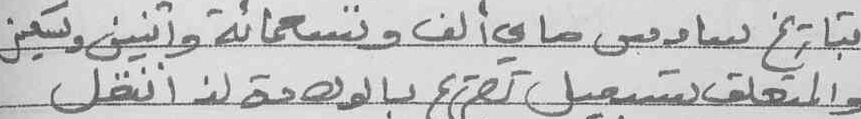 بتاريخ سادس ماي ألف وتسعمائة واثنين وسبعين
والمتعلق بتسجيل تصريح بالولادة لذا أنتقل